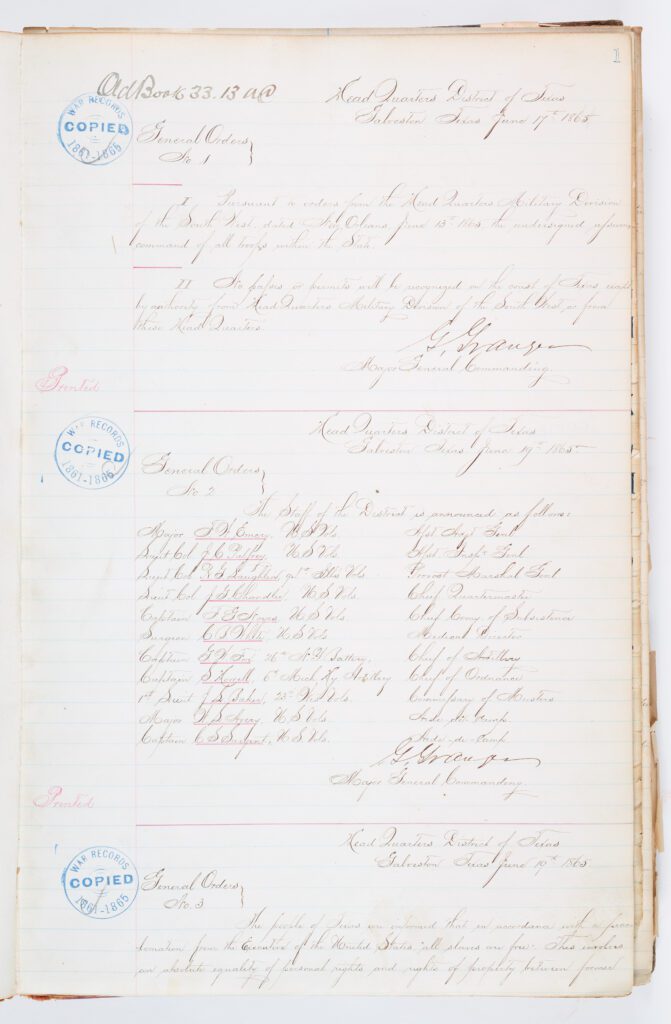 1
Ad Book 33. 13 a@
Head Quarters District of Texas
Galveston Texas June 17th 1865
WAR RECORDS
COPIED
1861-1865
General Orders
No 1
I Pursuant to orders from the Head Quarters Military Division
of the South West, dated New Orleans, June 13th 1865, the undersigned assumes
command of all troops within the State.
II No passes or permits will be recognized on the coast of Texas except
by authority from Head Quarters Military Division of the South West, or from
these Head Quarters.
G. Granger
Major General Commanding.
Printed
Head Quarters District of Texas
Galveston Texas June 19th 1865
WAR RECORDS
COPIED
1861-1865
General Orders
No 2
The Staff of the District is announced as follows:
Major F. W. Emery, U S Vols. Asst Adjt Genl
Lieut Col J. C. Palfrey, U S Vols. Asst Insp. Genl
Lieut Col R. G. Laughlin, 94th Ills Vols. Provost Marshal Genl
Lieut Col J. G. Chandler, U S Vols. Chief Quartermaster
Captain U S Vols. Chief Comy of Subsistence
Surgeon U S Vols Medical Director
Captain 26th N. Y. Battery, Chief of Artillery
Captain S Howell 6th Mich Hy Artillery Chief of Ordnance
1st Lieut J. L. Baker, 23d Vols Commissary of Musters
Major U S Vols. Aide-de-Camp.
Captain C S Sargent, U S Vols. Aide-de-Camp
G. Granger
Major General Commanding.
Printed
Head Quarters District of Texas
Galveston Texas June 19th 1865
WAR RECORDS
COPIED
1861-1865
General Orders
No. 3
The people of Texas are informed that in accordance with a proc
lamation from the Executive of the United States "all slaves are free." This involves
an absolute equality of personal rights and rights of property between former